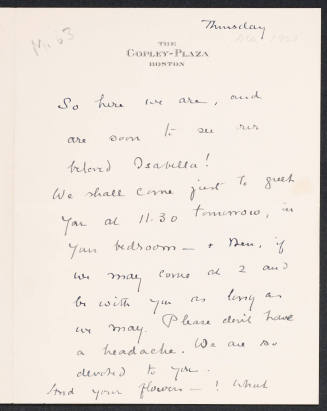 Thursday
THE
COPLEY-PLAZA
BOSTON
So here we are, and
are soon to see our
beloved Isabella!
We shall come just to greet
you at 11.30 tomorrow, in
your bedroom — & then, if
we may come at 2 and
be with you as long as
we may. Please don't have
a headache. We are so
devoted to you.
And your flowers — ! What